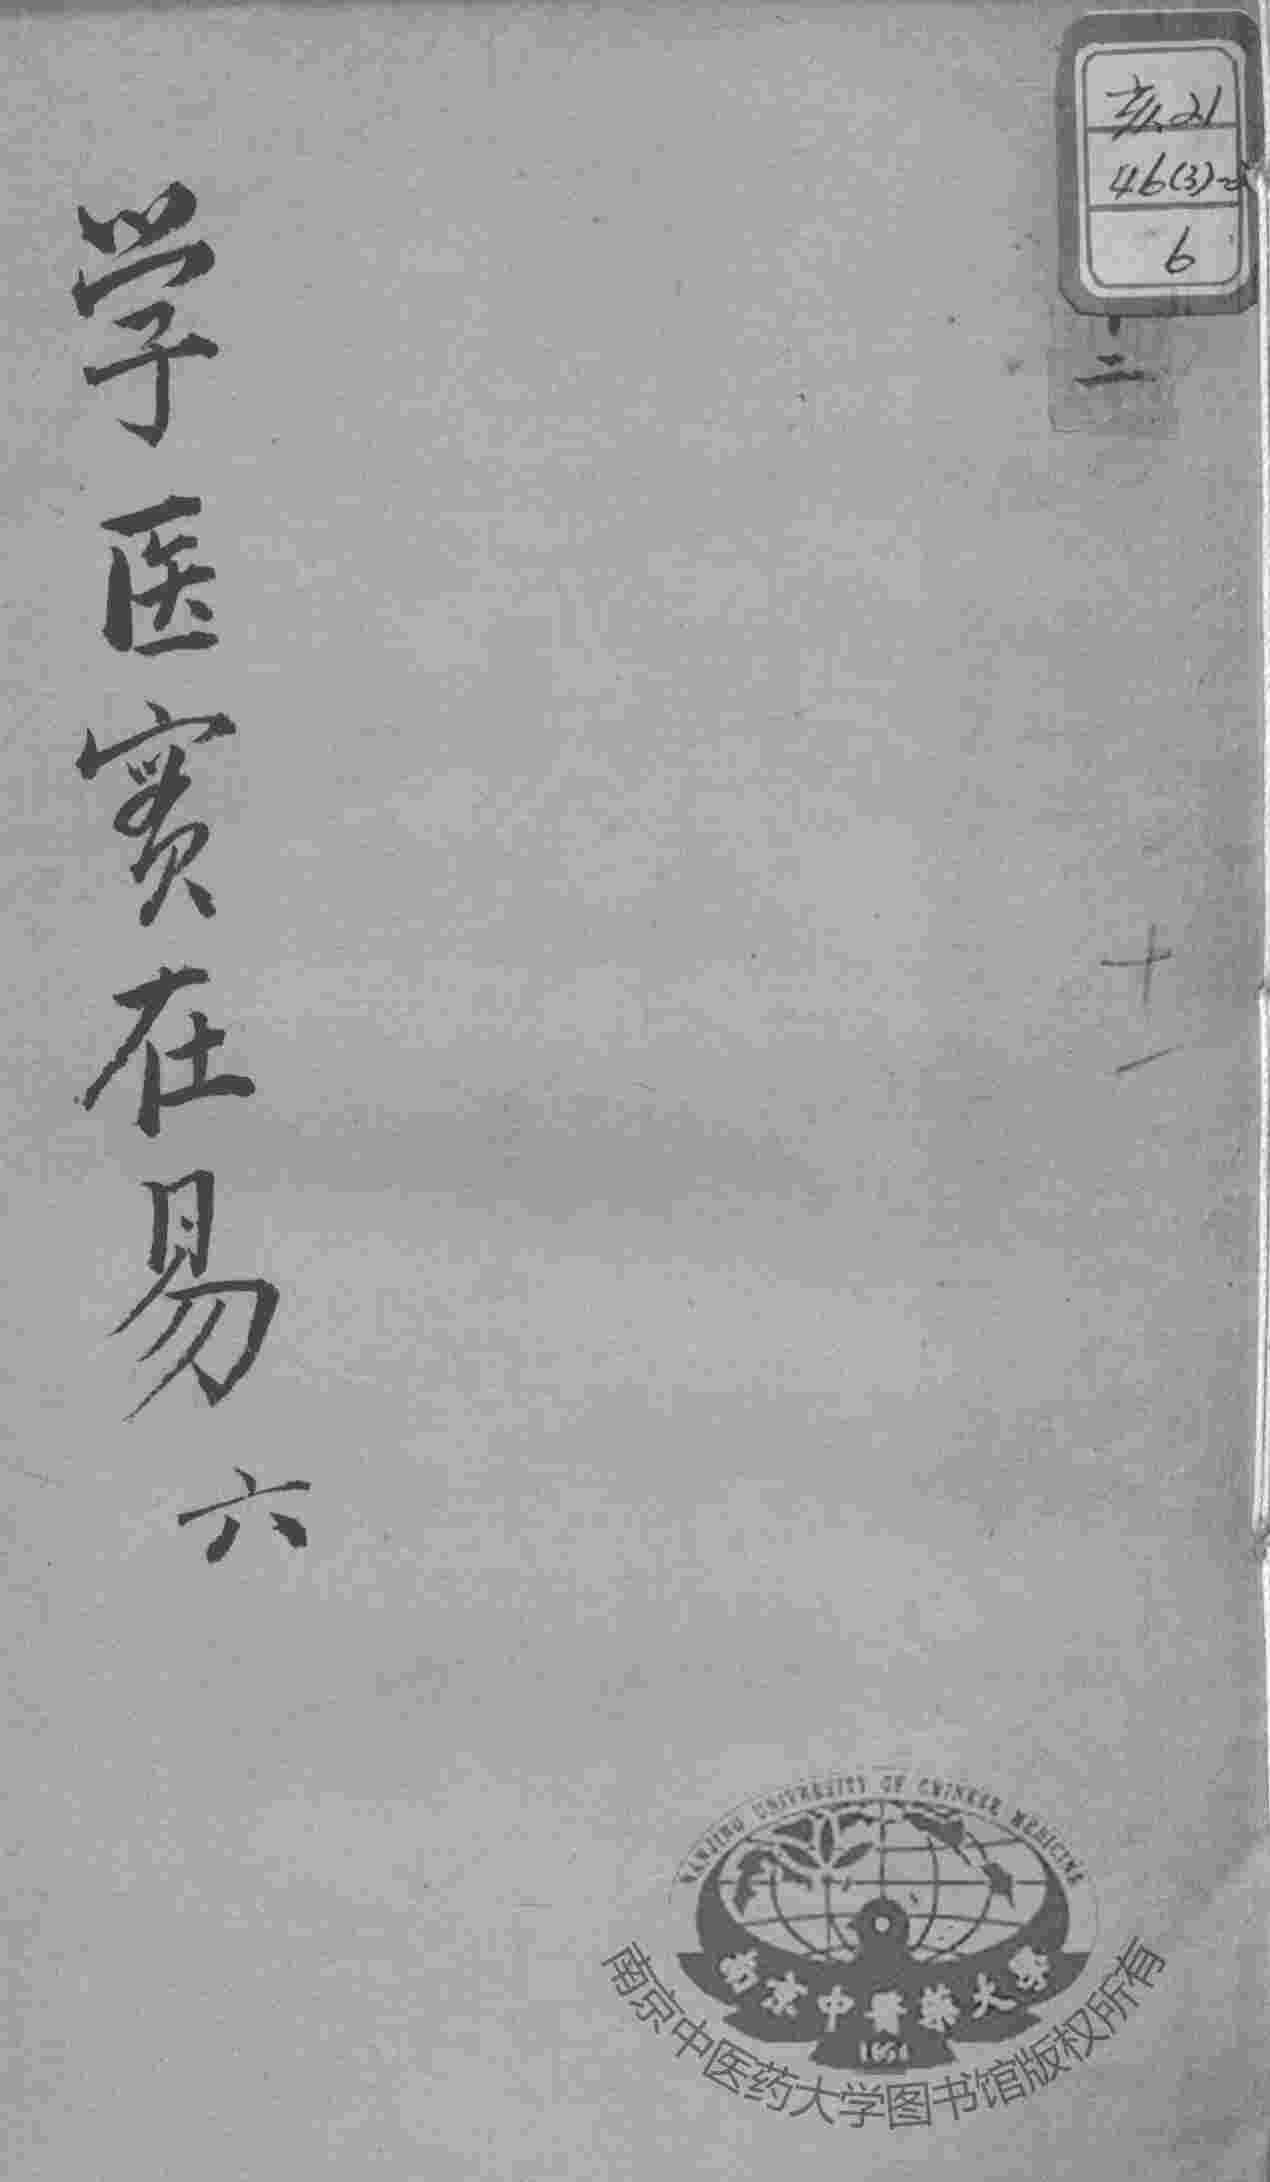 学医实在易 六
亥21
46(3)-2
6
二
十一
NANJING UNIVERSITY OF CHINESE MEDICINE
南京中医药大学
南京中医药大学图书馆版权所有